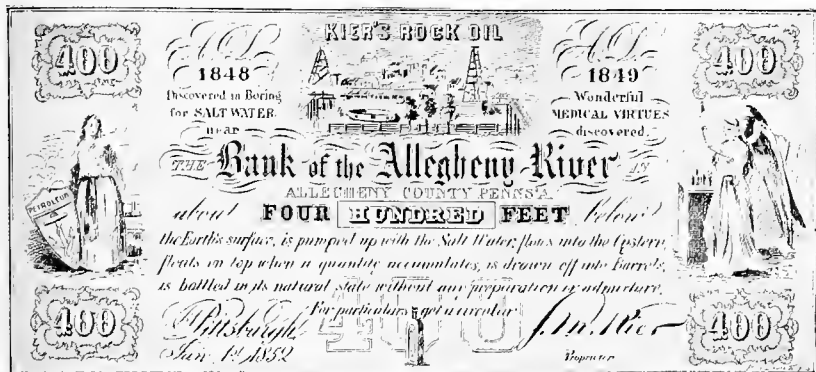 400
KIER'S ROCK OIL
400
A.D. 1848
Discovered in Boring
for SALT WATER
near
A.D. 1849
Wonderful
MEDICAL VIRTUES
discovered.
THE Bank of the Allegheny River IN
ALLEGHENY COUNTY PENNS'A.
about FOUR HUNDRED FEET below
the Earth's surface, is pumped up with the Salt Water, flows into the Cistern,
floats on top when a quantity accumulates, is drawn off into Barrels,
is bottled in its natural state without any preparation or admixture.
PETROLEUM
For particulars get a circular
400
400
Pittsburgh
Jan. 1st 1852
400
S. M. Kier
Proprietor